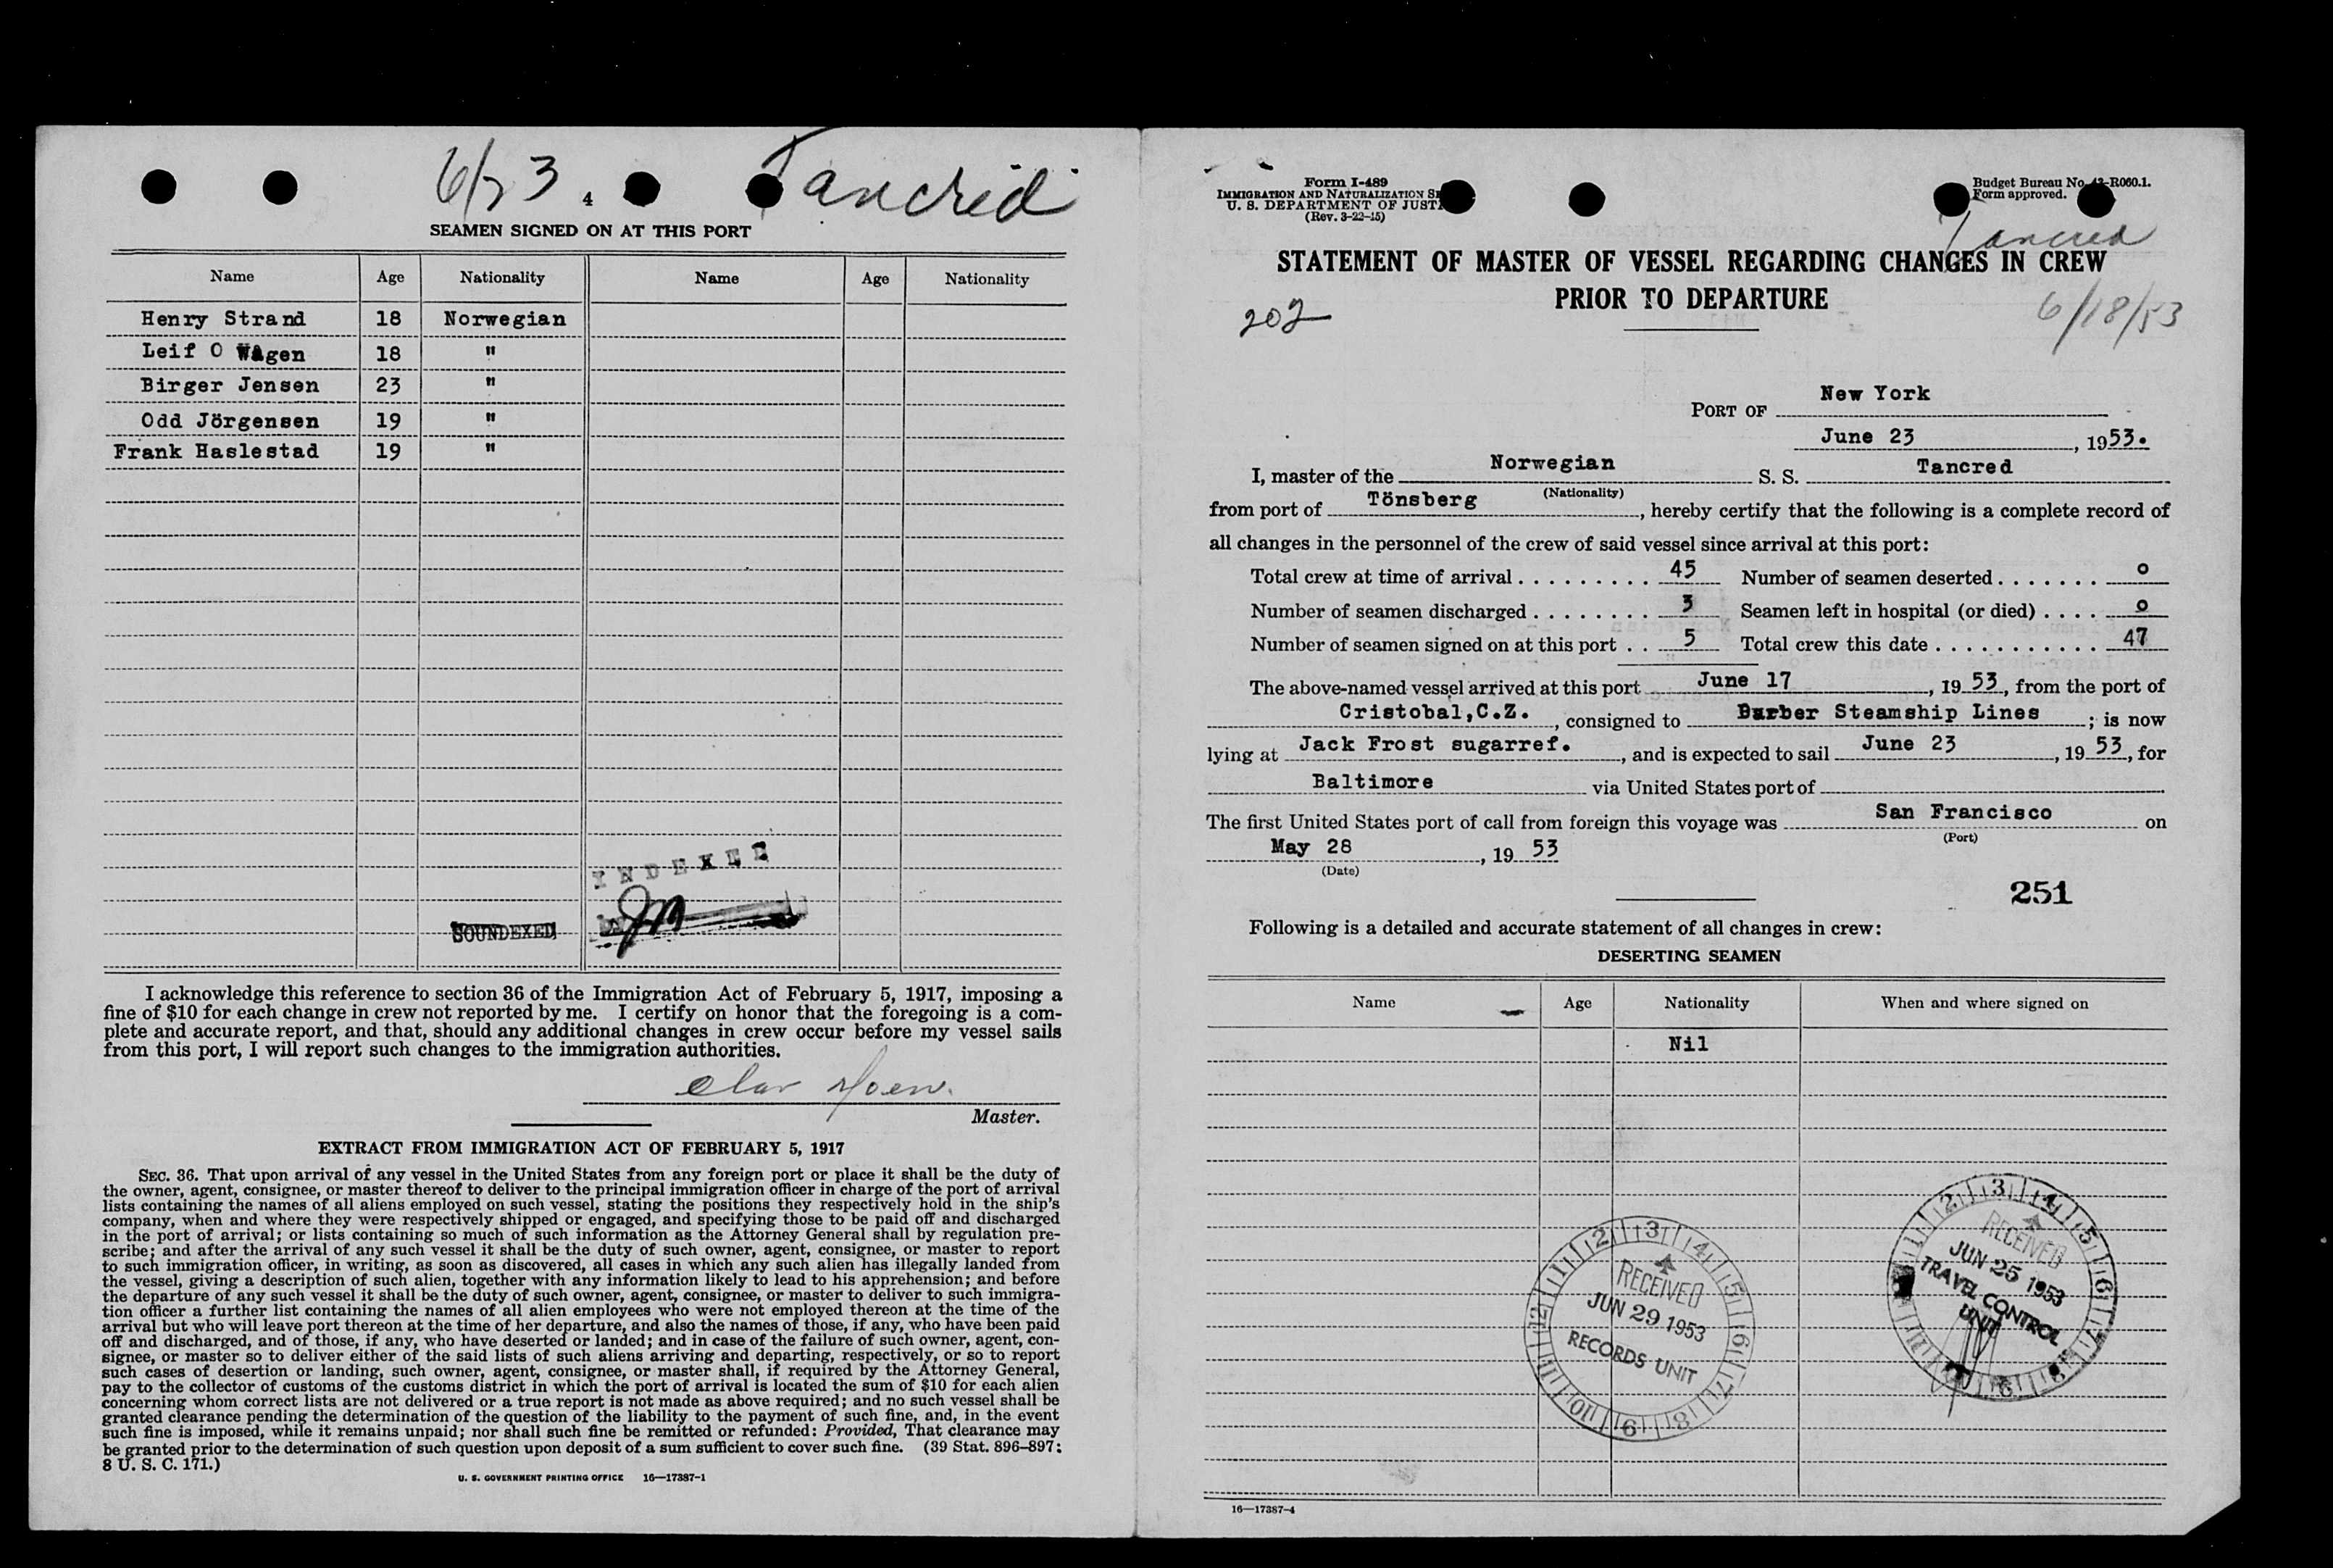 6/23 4 Tancred
SEAMEN SIGNED ON AT THIS PORT
Name Age Nationality Name Age Nationality
Henry Strand 18 Norwegian
Leif O Wågen 18 "
Birger Jensen 23 "
Odd Jörgensen 19 "
Frank Haslestad 19 "
INDEXED
SOUNDEXED
I acknowledge this reference to section 36 of the Immigration Act of February 5, 1917, imposing a
fine of $10 for each change in crew not reported by me. I certify on honor that the foregoing is a com-
plete and accurate report, and that, should any additional changes in crew occur before my vessel sails
from this port, I will report such changes to the immigration authorities.
Olav Moen.
Master.
EXTRACT FROM IMMIGRATION ACT OF FEBRUARY 5, 1917
SEC. 36. That upon arrival of any vessel in the United States from any foreign port or place it shall be the duty of
the owner, agent, consignee, or master thereof to deliver to the principal immigration officer in charge of the port of arrival
lists containing the names of all aliens employed on such vessel, stating the positions they respectively hold in the ship's
company, when and where they were respectively shipped or engaged, and specifying those to be paid off and discharged
in the port of arrival; or lists containing so much of such information as the Attorney General shall by regulation pre-
scribe; and after the arrival of any such vessel it shall be the duty of such owner, agent, consignee, or master to report
to such immigration officer, in writing, as soon as discovered, all cases in which any such alien has illegally landed from
the vessel, giving a description of such alien, together with any information likely to lead to his apprehension; and before
the departure of any such vessel it shall be the duty of such owner, agent, consignee, or master to deliver to such immigra-
tion officer a further list containing the names of all alien employees who were not employed thereon at the time of the
arrival but who will leave port thereon at the time of her departure, and also the names of those, if any, who have been paid
off and discharged, and of those, if any, who have deserted or landed; and in case of the failure of such owner, agent, con-
signee, or master so to deliver either of the said lists of such aliens arriving and departing, respectively, or so to report
such cases of desertion or landing, such owner, agent, consignee, or master shall, if required by the Attorney General,
pay to the collector of customs of the customs district in which the port of arrival is located the sum of $10 for each alien
concerning whom correct lists are not delivered or a true report is not made as above required; and no such vessel shall be
granted clearance pending the determination of the question of the liability to the payment of such fine, and, in the event
such fine is imposed, while it remains unpaid; nor shall such fine be remitted or refunded: Provided, That clearance may
be granted prior to the determination of such question upon deposit of a sum sufficient to cover such fine. (39 Stat. 896–897;
8 U. S. C. 171.)
U. S. GOVERNMENT PRINTING OFFICE 16—17387-1
Form I-489
IMMIGRATION AND NATURALIZATION
U. S. DEPARTMENT OF
(Rev. 3-22-45)
Budget Bureau No. R060.1.
Form approved.
Tancred
STATEMENT OF MASTER OF VESSEL REGARDING CHANGES IN CREW
PRIOR TO DEPARTURE
202
6/18/53
PORT OF New York
June 23, 1953.
I, master of the Norwegian S. S. Tancred
(Nationality)
from port of Tönsberg, hereby certify that the following is a complete record of
all changes in the personnel of the crew of said vessel since arrival at this port:
Total crew at time of arrival . . . . . . . . . 45 Number of seamen deserted . . . . . . . 0
Number of seamen discharged . . . . . . . . 3 Seamen left in hospital (or died) . . . . 0
Number of seamen signed on at this port . . 5 Total crew this date . . . . . . . . . . . 47
The above-named vessel arrived at this port June 17, 19 53, from the port of
Cristobal,C.Z., consigned to Barber Steamship Lines; is now
lying at Jack Frost sugarref., and is expected to sail June 23, 19 53, for
Baltimore via United States port of
The first United States port of call from foreign this voyage was San Francisco on
(Port)
May 28, 19 53
(Date)
251
Following is a detailed and accurate statement of all changes in crew:
DESERTING SEAMEN
Name Age Nationality When and where signed on
Nil
1 2 3 4 5 6 7 8 9 10 11 12
RECEIVED
JUN 29 1953
RECORDS UNIT
RECEIVED
JUN 25 1953
TRAVEL CONTROL
UNIT
16—17387-4